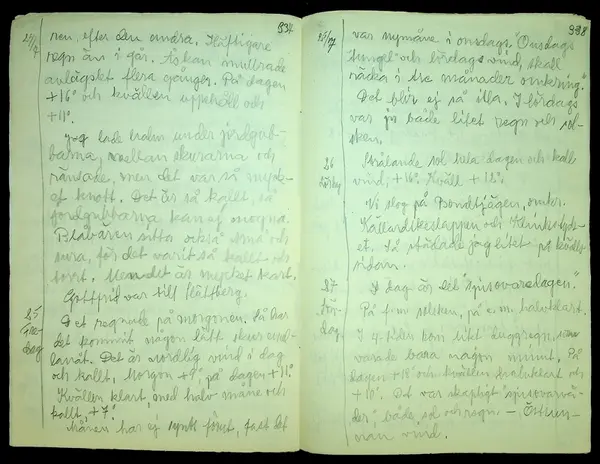 24/7
937
ren, efter den andra. Häftigare
regn än i går. Åskan mullrade
avlägset flera gånger. På dagen
+16° och kvällen uppehåll och
+11°.
Jag lade halm under jordgub-
barna, mellan skurarna och
räntade, men det var så myck-
et knott. Det är så kallt, så
jordgubbarna kan ej mogna.
Blåbären sitter också små och
sura, för det varit så kallt och
torrt. Men det är mycket kart.
Gottfrid var till Hettberg.
25
Fre-
dag
Det regnade på morgonen. Så har
det kommit någon lätt skur emel-
lanåt. Det är nordlig vind i dag
och kallt, Morgon +9° på dagen +11°
Kvällen klart, med halv måne och
kallt, +7°.
Månen har ej synts förut, fast det
25/7
938
var nymåne i onsdags. "Onsdags
tungel och lördags vind, skall
räcka i tre månader omkring."
Det blir ej så illa. I lördags
var ju både litet regn och sol-
sken.
26
Lördag
Strålande sol hela dagen och kall
vind, +16°. Kväll +12°.
Vi slog på
Källardikeslappen och
et. Så städade jag litet på kvälls
sidan.
27
Sön-
dag
I dag är det "sjusovaredagen."
På f.m. solsken, på e.m. halvklart.
I 4-tiden kom litet duggregn, som
varade bara någon minut, På
dagen +18° och kvällen halvklart och
+10°. Det var skapligt "sjusovarvä-
der", både sol och regn. – Östan-
nan vind.